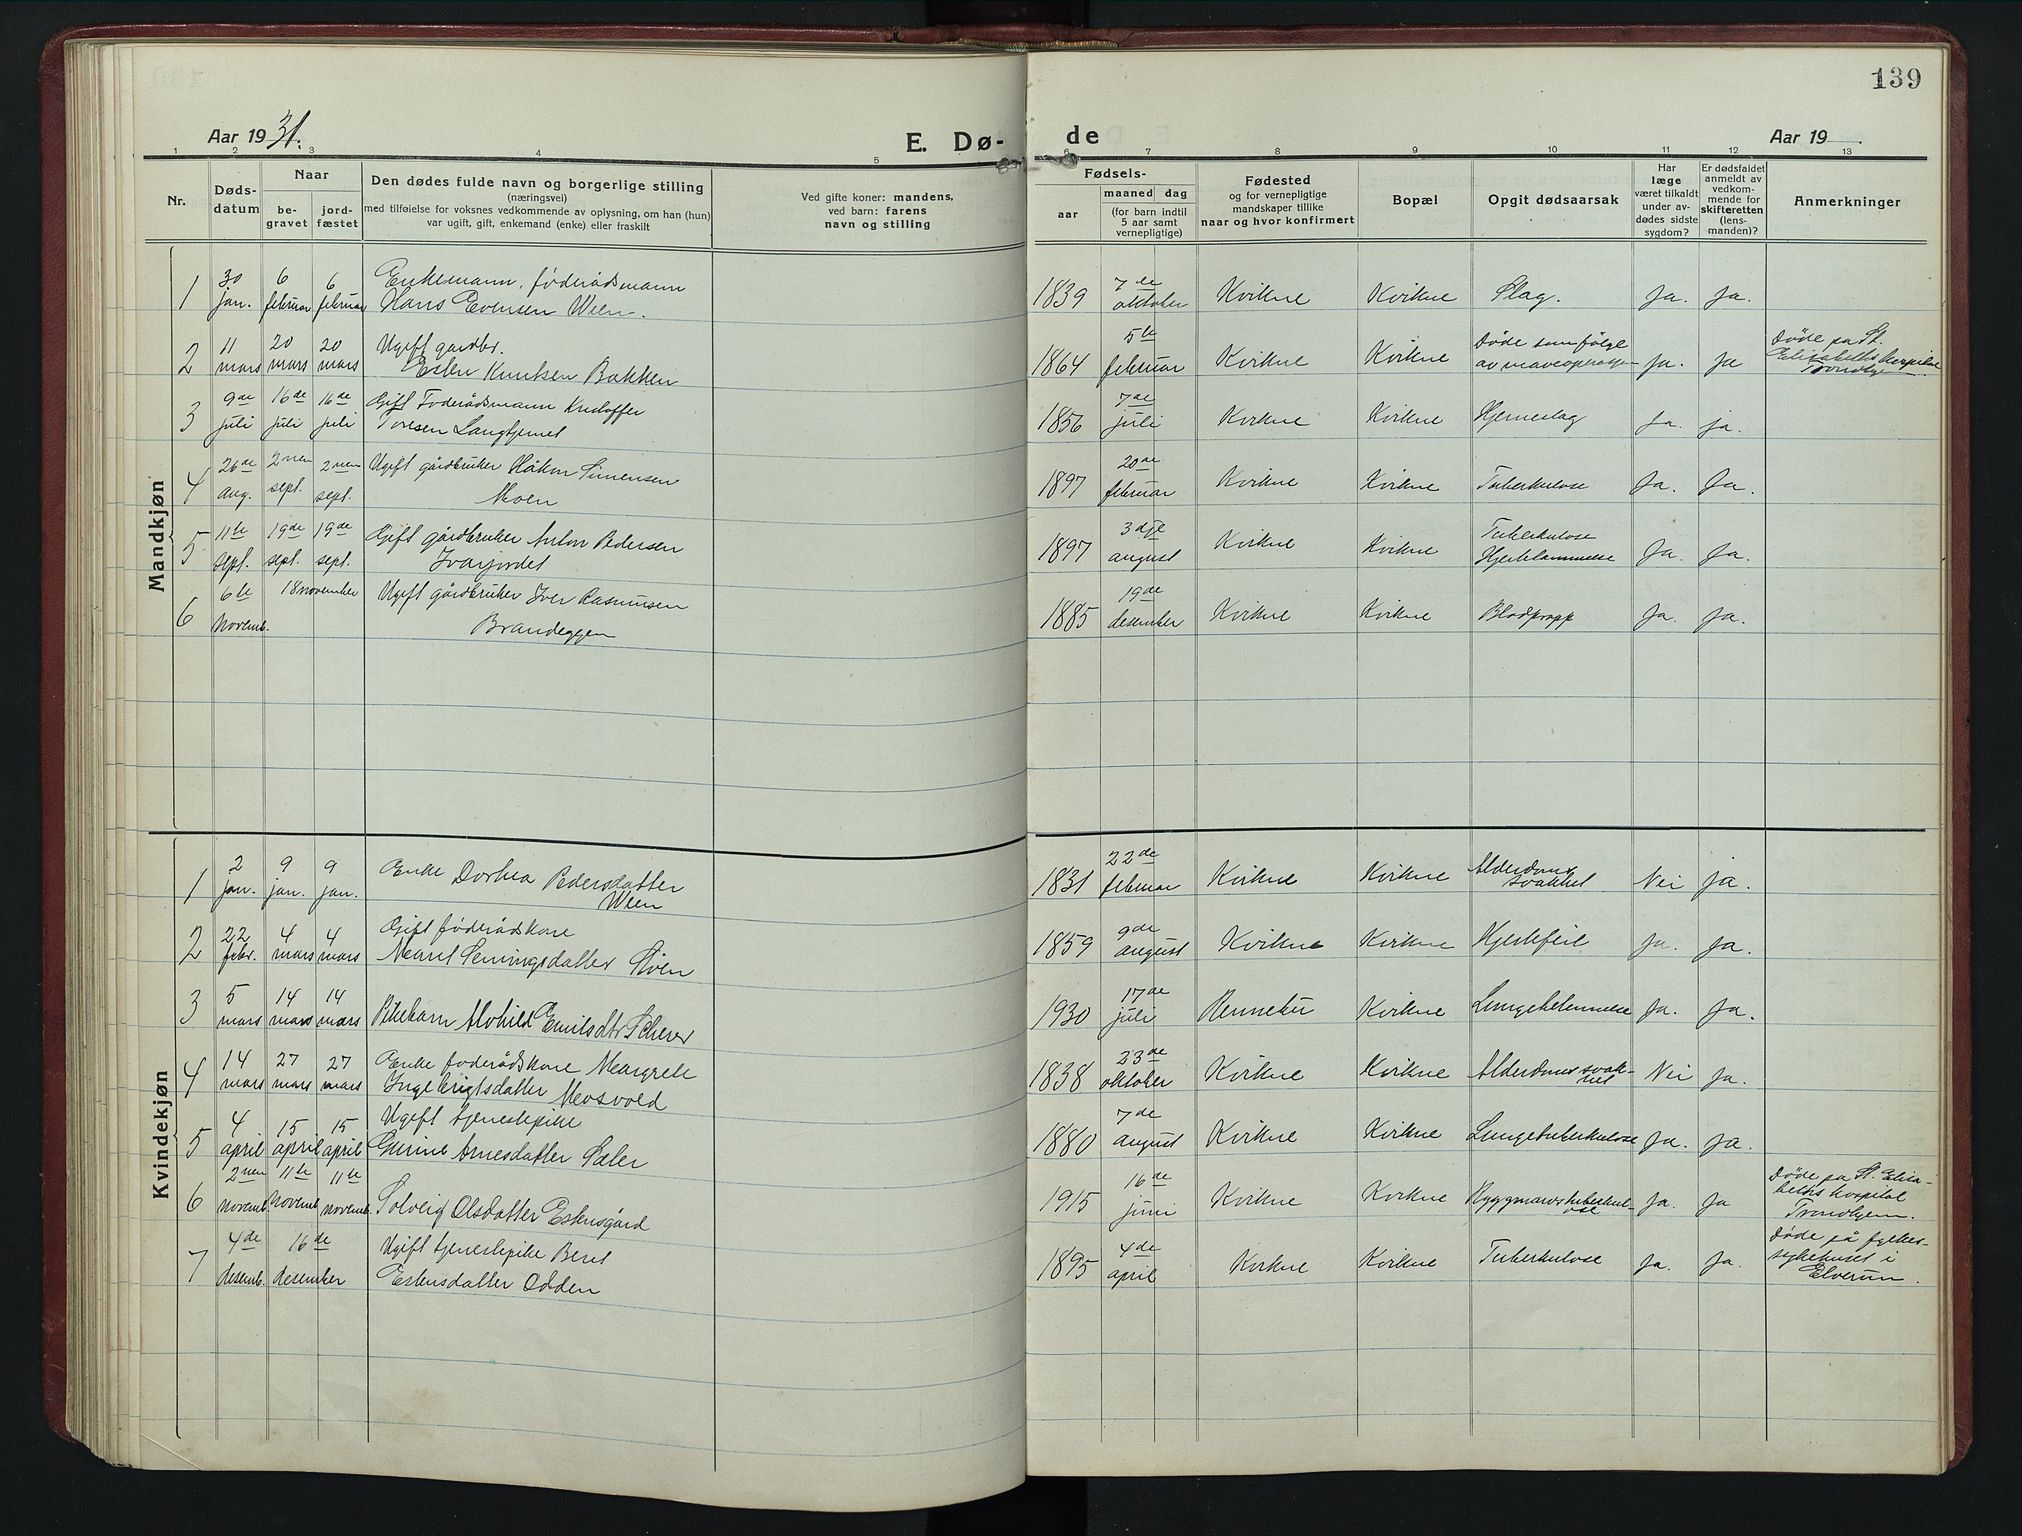 139
Aar 1931.
E. Dø-
de
Aar 19
1 2 3 4 5 6 7 8 9 10 11 12 13
Nr.
Døds-
datum
Naar
be-
gravet
jord-
fæstet
Den dødes fulde navn og borgerlige stilling
(næringsvei)
med tilføielse for voksnes vedkommende av oplysning, om han (hun)
var ugift, gift, enkemand (enke) eller fraskilt
Ved gifte koner: mandens,
ved barn: farens
navn og stilling
Fødsels-
aar
maaned dag
(for barn indtil
5 aar samt
vernepligtige)
Fødested
og for vernepligtige
mandskaper tillike
naar og hvor konfirmert
Bopæl
Opgit dødsaarsak
Har
læge
været tilkaldt
under av-
dødes sidste
sygdom?
Er dødsfaldet
anmeldt av
vedkom-
mende for
skifteretten
(lens-
manden)?
Anmerkninger
Mandkjøn
1 30 jan. 6 februar 6 februar Enkemann, føderådsmann
Hans Evensen Wien. 1839 7de oktober Kvikne Kvikne Slag. Ja. Ja.
2 11 mars 20 mars 20 mars Ugift gardbr.
Esten Knutsen Bakken 1864 5te februar Kvikne Kvikne Døde som følge
av maveoperasjon Ja. Ja Døde på St.
Elisabeths hospital
Trondhjem
3 9de juli 16de juli 16de juli Gift Føderådsmann Kristoffer
Toresen Langtjernet 1856 7de juli Kvikne Kvikne Hjerneslag Ja. ja.
4 26de Aug. 2nen sept. 2nen sept. Ugift gårdbruker Håkon Simensen
Moen 1897 20de februar Kvikne Kvikne Tuberkulose Ja. Ja.
5 11te sept. 19de sept. 19de sept. Gift gårdbruker Anton Pedersen
Ivarjordet 1897 3dje august Kvikne Kvikne Tuberkulose
Hjertelammelse Ja. Ja.
6 6te Novemb. 18 november Ugift gårdbruker Iver Rasmusen
Brandeggen 1885 19de desember Kvikne Kvikne Blodpropp Ja. Ja.
Kvindekjøn
1 2 jan. 9 jan. 9 jan. Enke Dorhea Pedersdatter
Wien 1831 22de februar Kvikne Kvikne Alderdoms
svakhet Nei ja.
2 22 febr. 4 mars 4 mars Gift føderådskone
Marit Semingsdatter Støen 1859 9de august Kvikne Kvikne Hjertefeil Ja. Ja.
3 5 mars 14 mars 14 mars Pikebarn Alvhild Emilsdtr 1930 17de juli Rennebu Kvikne Lungebetennelse Ja. Ja.
4 14 mars 27 mars 27 mars Enke føderådskone Margrete
Ingebrigtsdatter Mosvold 1838 23de oktober Kvikne Kvikne Alderdomssvak-
het Nei Ja.
5 4 april 15 april 15 april Ugift tjenestepike
Gurine Arnesdatter Sæter 1880 7de august Kvikne Kvikne Lungetuberkulose Ja. Ja.
6 2nen novemb. 11te Novemb. 11te novemb. Solveig Olsdatter Estensgård 1915 16de juni Kvikne Kvikne Ryggmarvstuberkul-
ose Ja. Ja Døde på St. Elisa-
beths hospital
Trondhjem.
7 4de desemb. 16de desember Ugift tjenestepike Beret
Estensdatter Odden 1895 4de april Kvikne Kvikne Tuberkulose Ja. Ja. Døde på fylkes-
sykehuset i
Elverum.